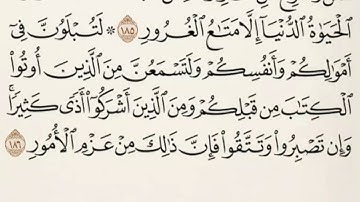 ٱلۡحَيَوٰةُ ٱلدُّنۡيَآ إِلَّا مَتَٰعُ ٱلۡغُرُورِ ١٨٥ ۞ لَتُبۡلَوُنَّ فِيٓ
أَمۡوَٰلِكُمۡ وَأَنفُسِكُمۡ وَلَتَسۡمَعُنَّ مِنَ ٱلَّذِينَ أُوتُواْ
ٱلۡكِتَٰبَ مِن قَبۡلِكُمۡ وَمِنَ ٱلَّذِينَ أَشۡرَكُوٓاْ أَذٗى كَثِيرٗاۚ
وَإِن تَصۡبِرُواْ وَتَتَّقُواْ فَإِنَّ ذَٰلِكَ مِنۡ عَزۡمِ ٱلۡأُمُورِ ١٨٦